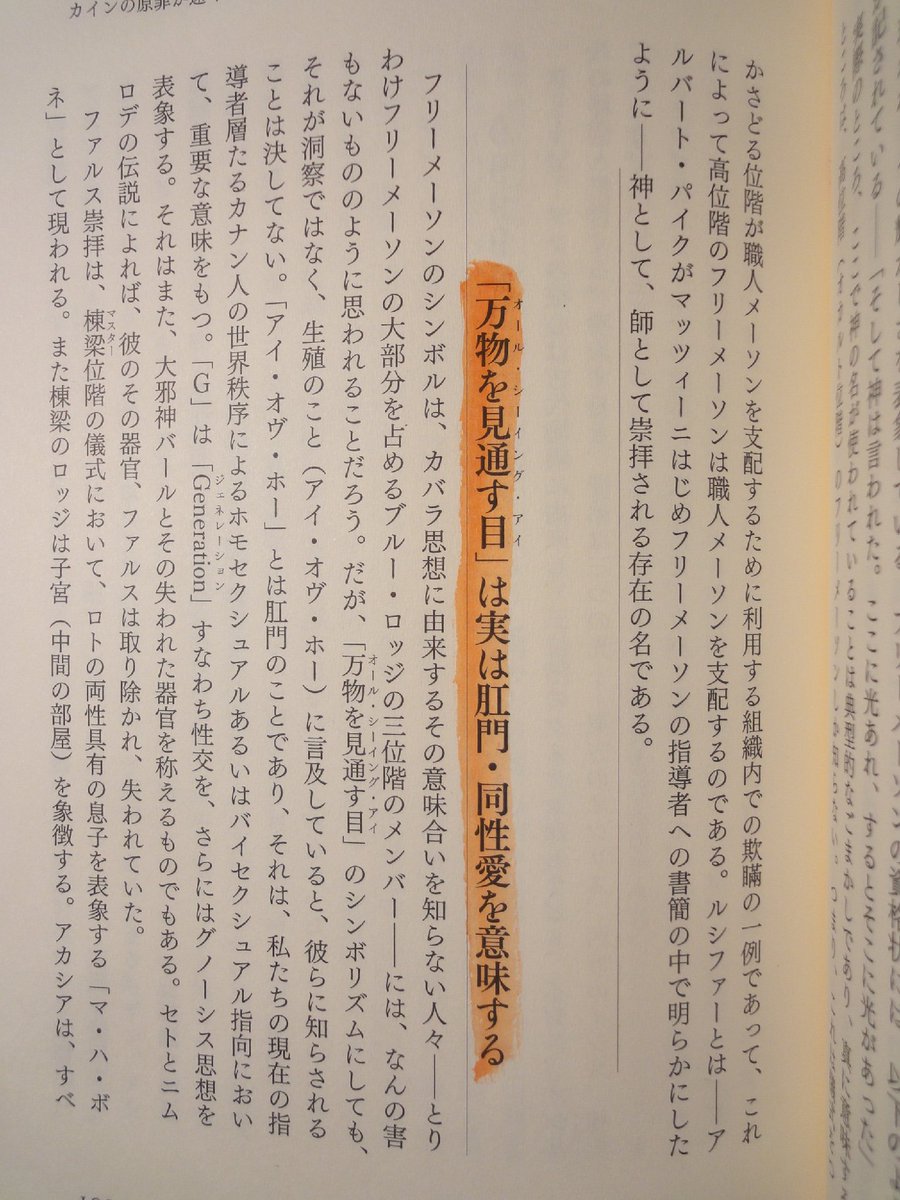 かさどる位階が職人メーソンを支配するために利用する組織内での欺瞞の一例であって、これ
によって高位階のフリーメーソンは職人メーソンを支配するのである。ルシファーとは——ア
ルバート・パイクがマッツィーニはじめフリーメーソンの指導者への書簡の中で明らかにした
ように——神として、師として崇拝される存在の名である。
「万物を見通す目」は実は肛門・同性愛を意味する
オール・シーイング・アイ
フリーメーソンのシンボルは、カバラ思想に由来するその意味合いを知らない人々——とり
わけフリーメーソンの大部分を占めるブルー・ロッジの三位階のメンバー——には、なんの害
もないもののように思われることだろう。だが、「万物を見通す目」のシンボリズムにしても、
オール・シーイング・アイ
それが洞察ではなく、生殖のこと（アイ・オヴ・ホー）に言及していると、彼らに知らされる
ことは決してない。「アイ・オヴ・ホー」とは肛門のことであり、それは、私たちの現在の指
導者層たるカナン人の世界秩序によるホモセクシュアルあるいはバイセクシュアル指向におい
て、重要な意味をもつ。「G」は「Generation」すなわち性交を、さらにはグノーシス思想を
ジェネレーション
表象する。それはまた、大邪神バールとその失われた器官を称えるものでもある。セトとニム
ロデの伝説によれば、彼のその器官、ファルスは取り除かれ、失われていた。
ファルス崇拝は、棟梁位階の儀式において、ロトの両性具有の息子を表象する「マ・ハ・ボ
マスター
ネ」として現われる。また棟梁のロッジは子宮（中間の部屋）を象徴する。アカシアは、すべ
カインの原罪が
「そして神は言われた。ここに光あれ、するとそこに光があった」
ここで神の名が使われていることは典型的なごまかしであり、